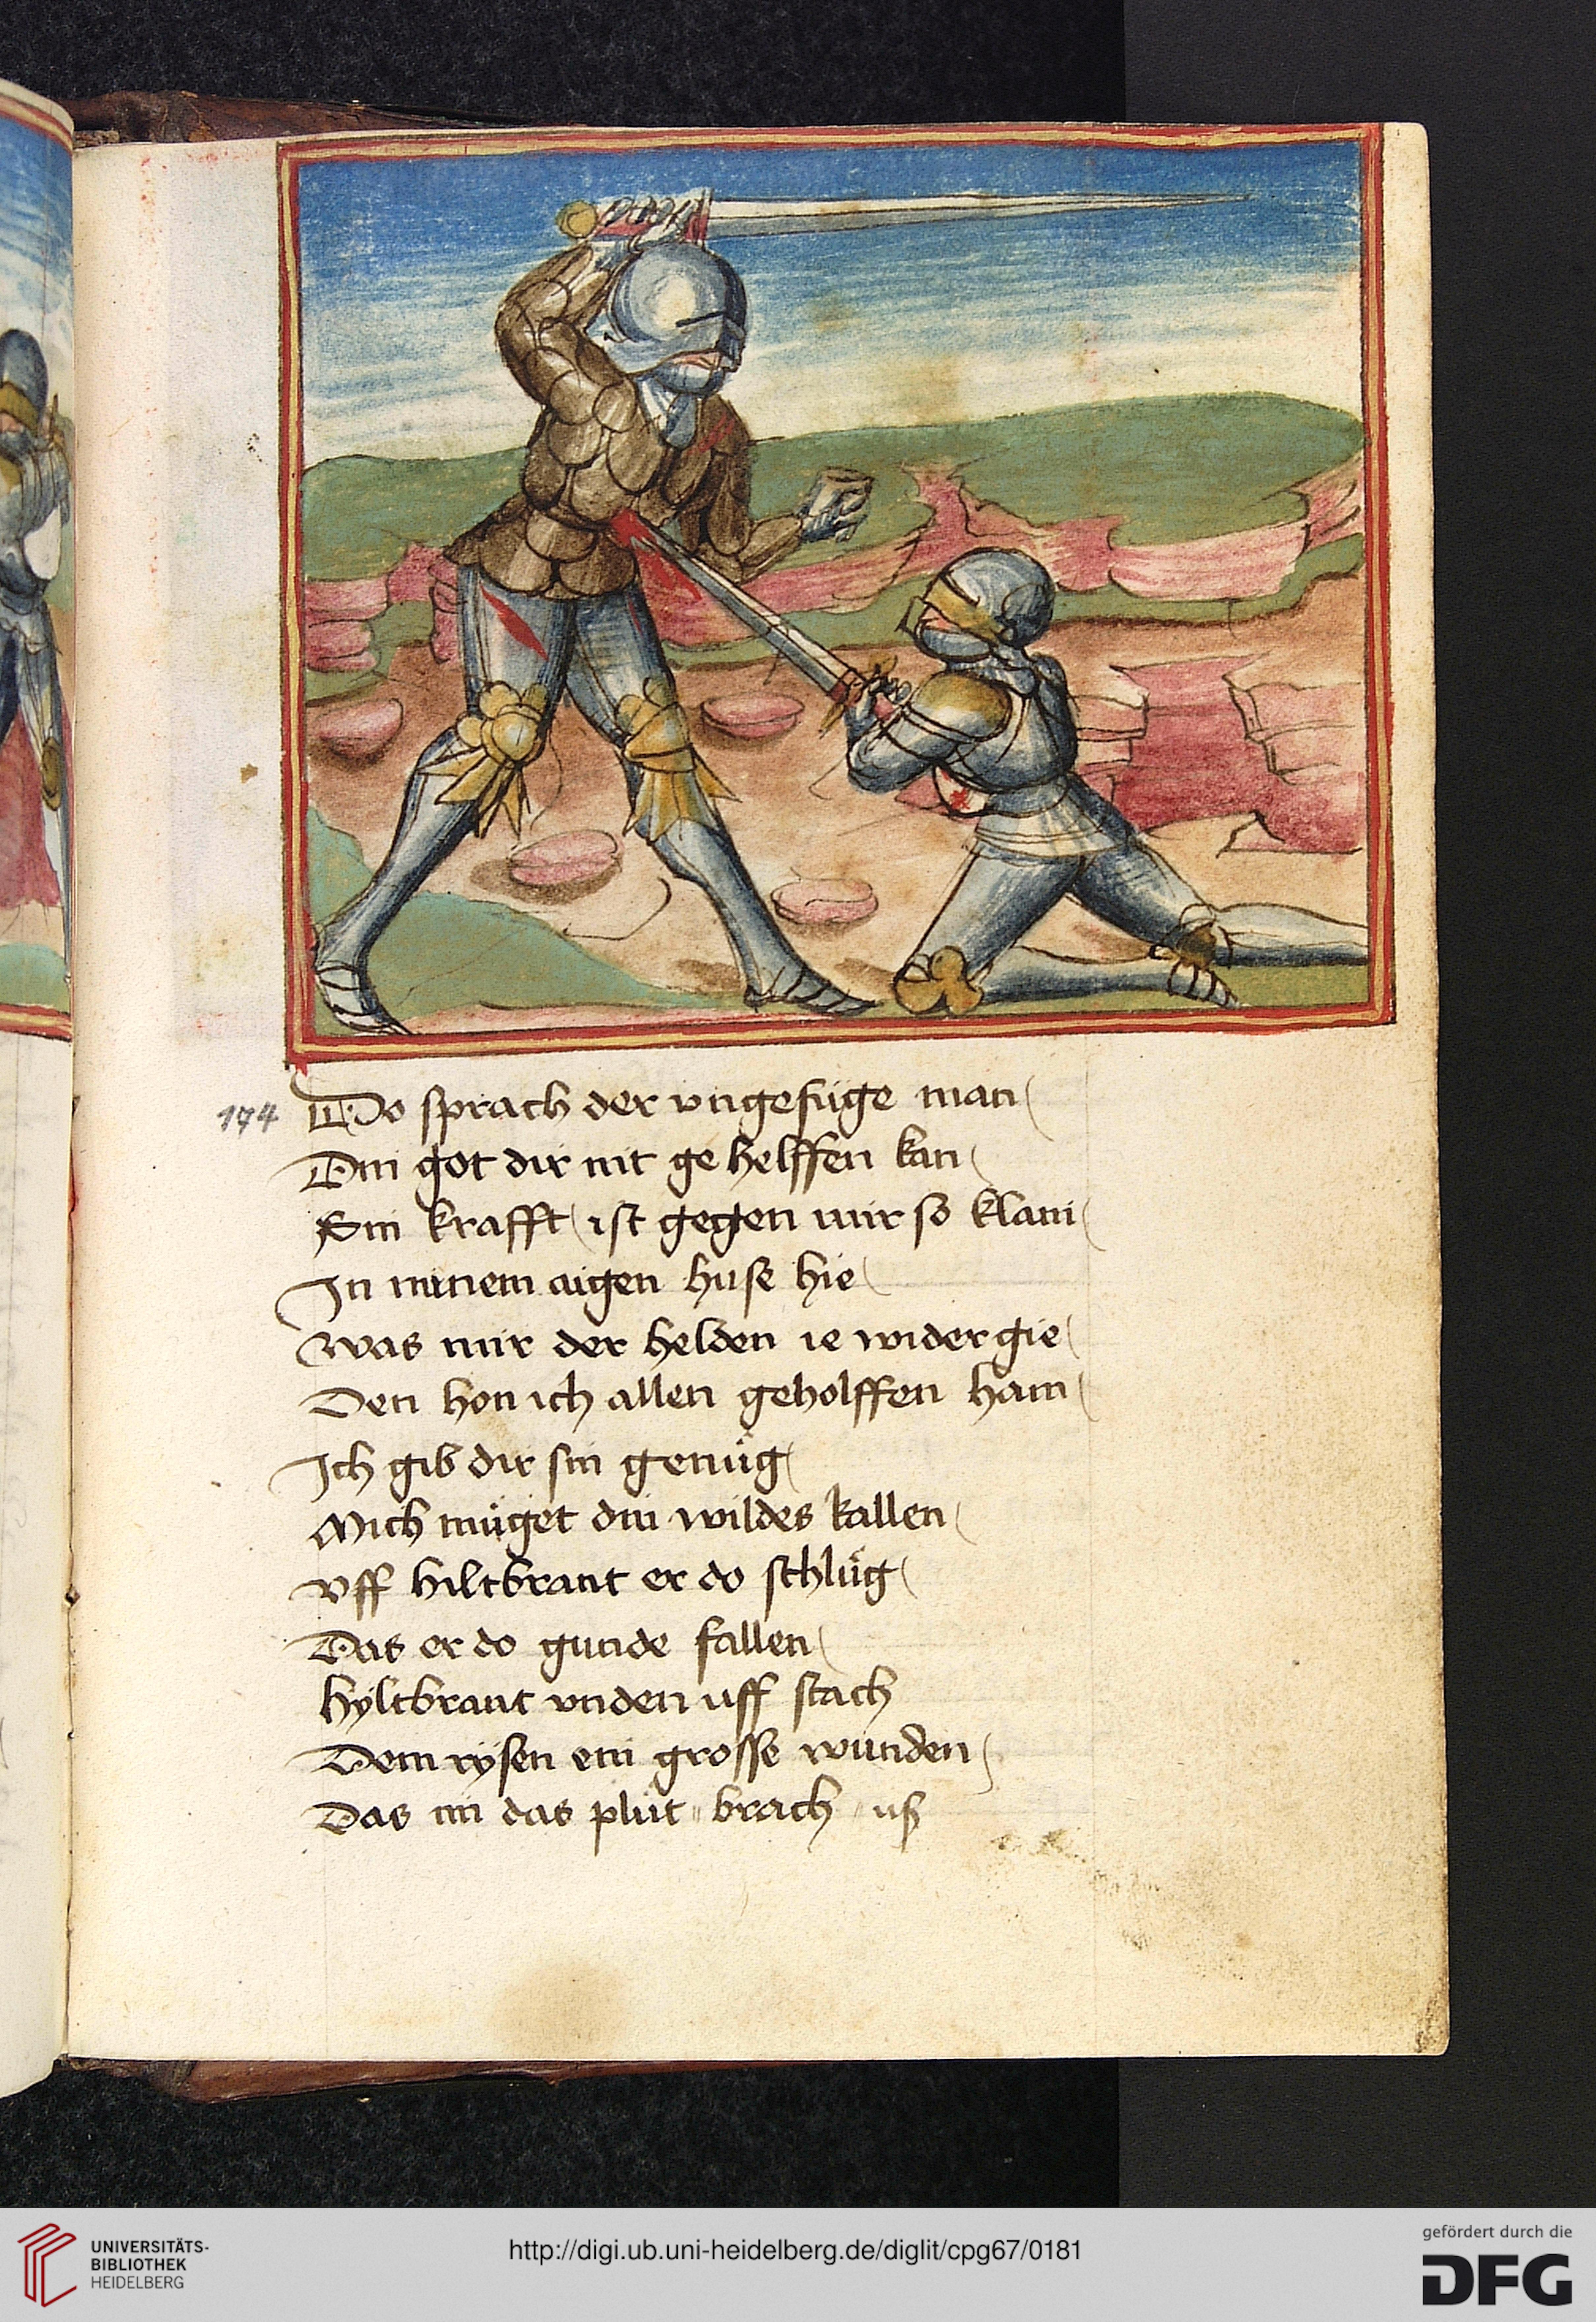 174 Do sprach der vngefuge man
Din got dir nit ge helffen kan
Sin krafft ist gegen mir so klain
In minem aigen huse hie
Was mir der helden ie wider gie
Den hon ich allen geholffen hain
Ich gib dir sin genůg
Mich müget din wildes kallen
Vff hiltbrant er do schlůg
Das er do gunde fallen
Hyltbrant vnden uff stach
Dem rysen ein grosse wunden
Das im das plůt brach uß
UNIVERSITÄTS-
BIBLIOTHEK
HEIDELBERG
http://digi.ub.uni-heidelberg.de/diglit/cpg67/0181
gefördert durch die
DFG